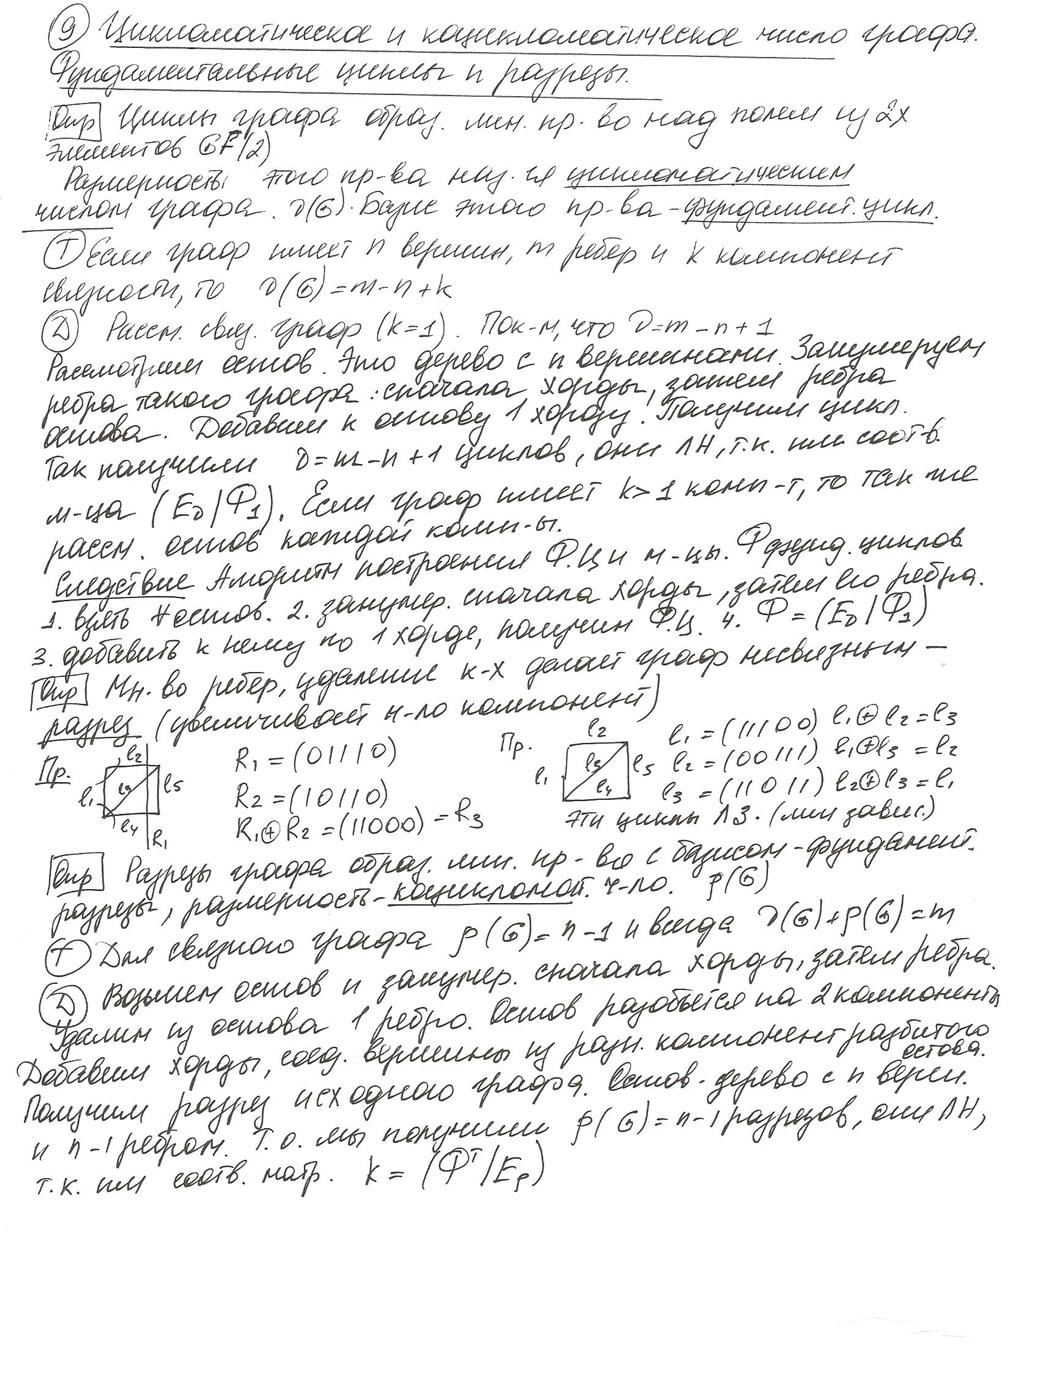 ⑨ Цикломатическое и коцикломатическое число графа.
Фундаментальные циклы и разрезы.
Опр Циклы графа образ. лин. пр-во над полем из 2х
элементов GF(2)
Размерность этого пр-ва наз-ся цикломатическим
числом графа. ν(G). Базис этого пр-ва - фундамент. цикл.
Т Если граф имеет n вершин, m ребер и k компонент
связности, то ν(G)=m-n+k
Д Рассм. связ. граф (k=1). Пок-м, что ν=m-n+1
Рассмотрим остов. Это дерево с n вершинами. Занумеруем
ребра такого графа: сначала хорды, затем ребра
остова. Добавим к остову 1 хорду. Получим цикл.
Так получили ν=m-n+1 циклов, они ЛН, т.к. им соотв.
м-ца (Eν|Ф₁). Если граф имеет k>1 комп-т, то так же
рассм. остов каждой комп-ы.
Следствие Алгоритм построения Ф.Ц и м-цы. Ф фунд. циклов
1. взять ∀ остов. 2. занумер. сначала хорды, затем его ребра.
3. добавить к нему по 1 хорде, получим Ф.Ц. 4. Ф = (Eν|Ф₁)
Опр Мн-во ребер, удаление к-х делает граф несвязным –
разрез (увеличивает ч-ло компонент)
Пр. l₁ l₂ l₃ l₄ l₅ R₁
R₁ = (01110)
R₂ = (10110)
R₁⊕R₂ = (11000) = R₃
Пр. l₁ l₂ l₃ l₄ l₅
l₁ = (11100) l₁⊕l₂=l₃
l₂ = (00111) l₁⊕l₃=l₂
l₃ = (11011) l₂⊕l₃=l₁
Эти циклы ЛЗ. (лин завис.)
Опр Разрезы графа образ. лин. пр-во с базисом - фундамент.
разрезы, размерность - коцикломат. ч-ло. ρ(G)
Т Для связного графа ρ(G)=n-1 и всегда ν(G)+ρ(G)=m
Д Возьмем остов и занумер. сначала хорды, затем ребра.
Удалим из остова 1 ребро. Остов разобьется на 2 компоненты
Добавим хорды, соед. вершины из разн. компонент разбитого
остова.
Получим разрез исходного графа. Остов - дерево с n верш.
и n-1 ребром. Т.о. мы получили ρ(G)=n-1 разрезов, они ЛН,
т.к. им соотв. матр. k = (Фᵀ|Eρ)